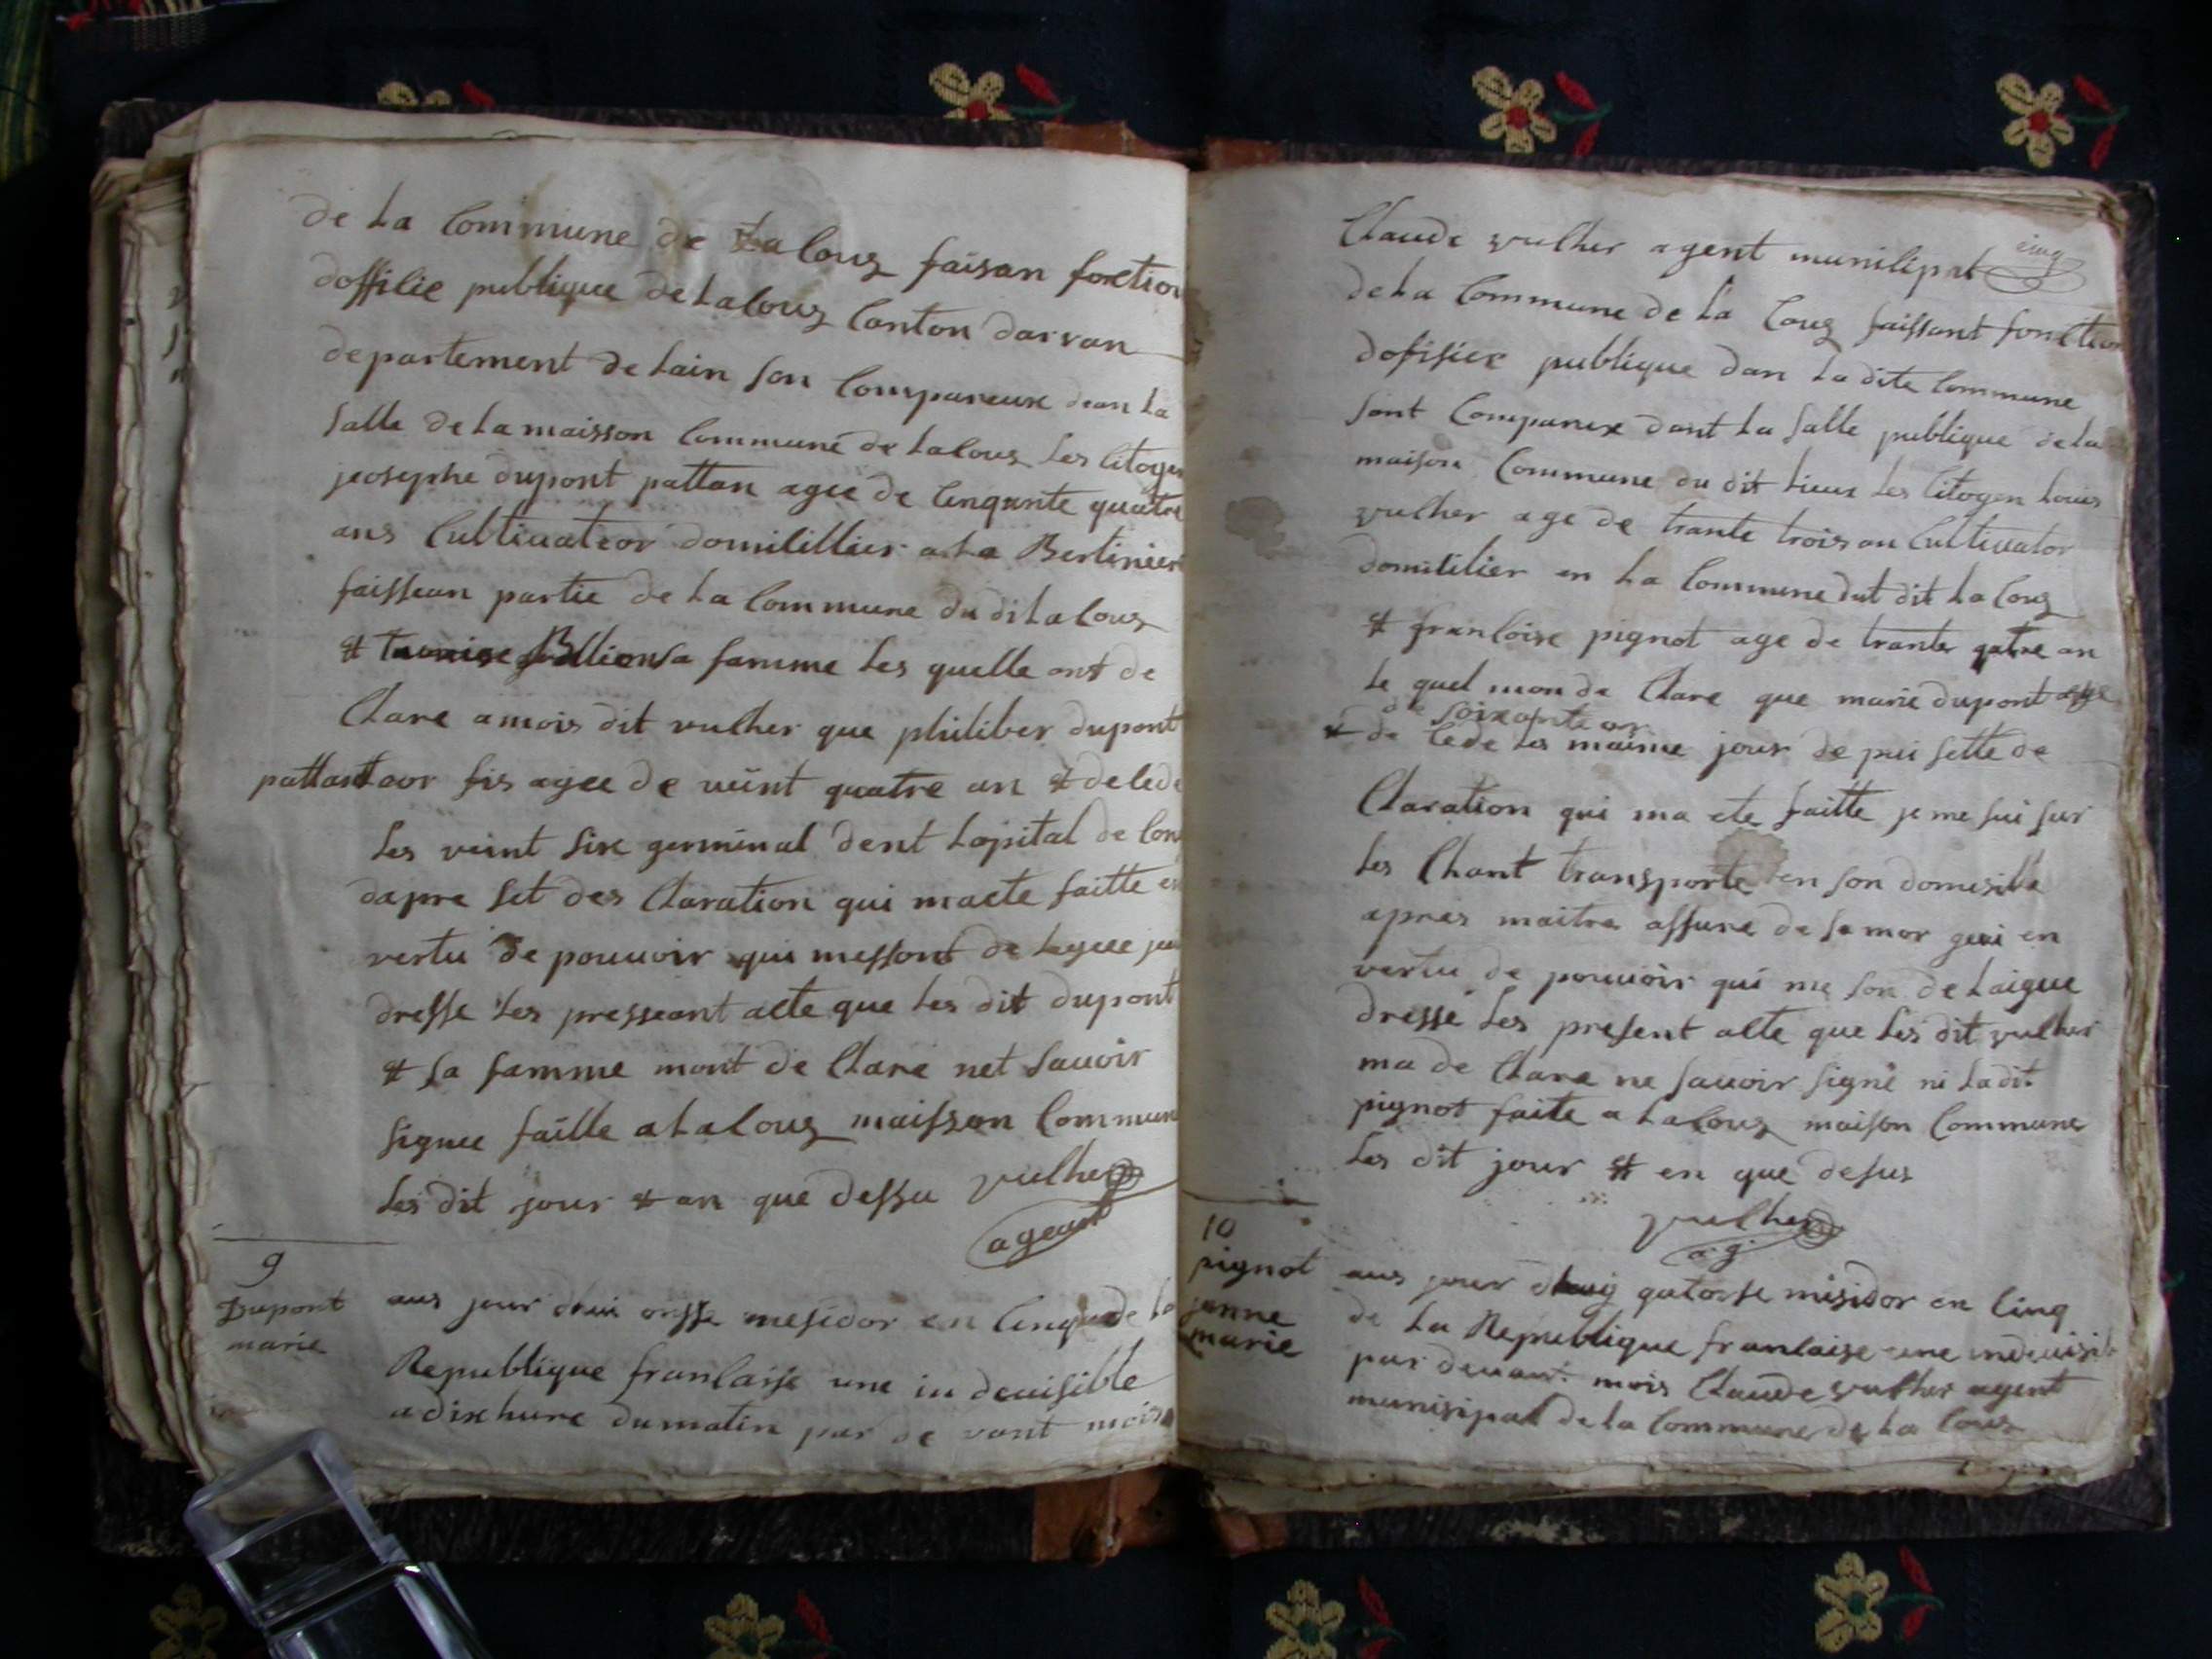 de La Commune de La Couz faisan fonction
doffisie publique de La Couz Canton darvan
departement de Lain Son Compareux dean La
Salle de La maisson Commune de La Couz Les Citoyen
jeosephe dupont pattan agee de Cinqunte quatre
ans Cultiuateor domicillier a La Bertinier
faissean partie de La Commune du dit La Couz
et Sa famme Les quelle ont de
Clare a mois dit vulher que philiber dupont
pattant Leor fis agee de veint quatre an et de cede
Les veint Six germinal dent Lopital de
dapre Set des Claration qui maete faitte en
vertu de pouuoir qui messont de Legue jai
dresse Les presseant acte que Les dit dupont
et Sa famme mont de Clare net Sauoir
Signee faitte a La Couz maisson Commune
Les dit jour et an que dessu vulher
agent
9
Dupont
marie
aus jour dhui onsse mesidor en Cinq de La
Republique francaise une in deuisible
a dix hure du matin par de vant mois
cinq
Claude vulher agent municipal
de La Commune de La Couz faissant fonction
dofisier publique dan La dite Commune
Sont Comparux dant La Salle publique de La
maison Commune du dit Lieux Les Citoyen Louis
vulher age de trante trois an Cultiuator
domicilier en La Commune dut dit La Couz
et francoise pignot age de trante qatre an
Le quel mon de Clare que marie dupont age
de soixante an
et de Cede Les maime jour de pui Sette de
Claration qui ma ete faitte je me Sui Sur
Les Chant transporte en Son domisille
apres maitre assure de Sa mor gai en
vertu de pouuoir qui me Son de Laigue
dresse Les present acte que Les dit vulher
ma de Clare ne Sauoir Signé ni La dit
pignot faite a La Couz maison Commune
Les dit jour et en que desus
vulher
a.g.
10
pignot
janne
marie
aus jour dhuij qatorse misidor en Cinq
de La Republique francaise une indiuisib
par deuant mois Claude vulher agent
munisipal de La Commune de La Couz